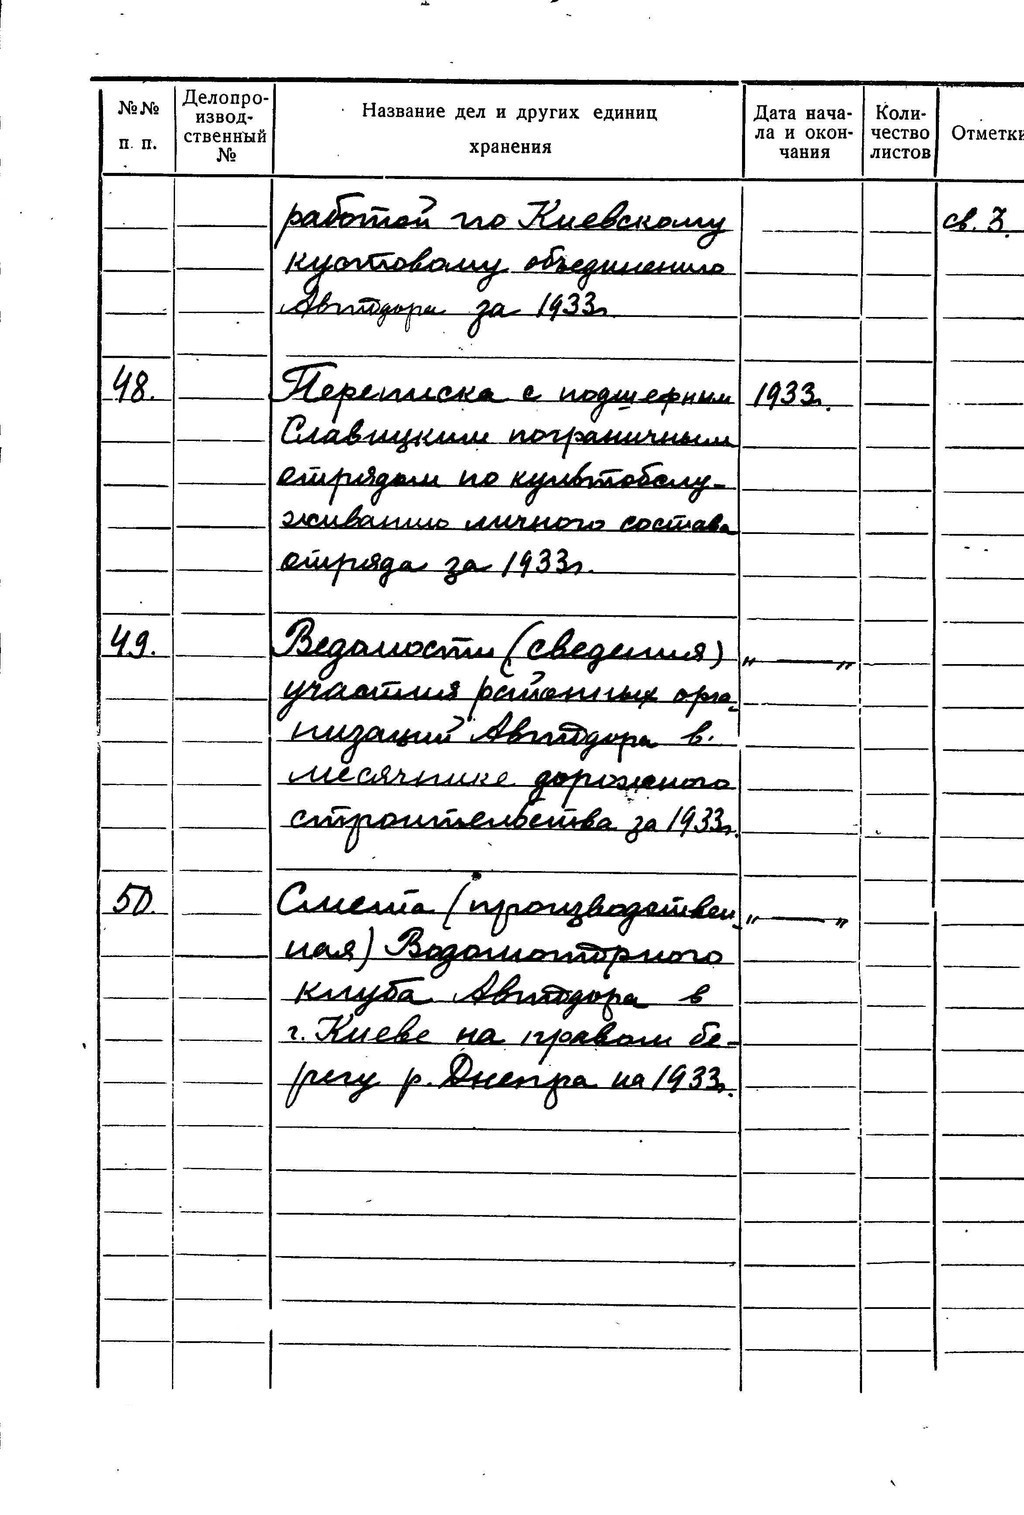 №№ п. п. Делопро-извод-ственный № Название дел и других единиц хранения Дата нача-ла и окон-чания Коли-чество листов Отметки
работой по Киевскому св. 3.
кустовому объединению
Автодора за 1933г.
48. Переписка с подшефным 1933г.
Славуцким пограничным
отрядом по культобслу-
живанию личного состава
отряда за 1933г.
49. Ведомости (сведения) „ — „
участия районных орга-
низаций Автодора в
месячнике дорожного
строительства за 1933г.
50. Смета (производствен- „ — „
ная) Водомоторного
клуба Автодора в
г. Киеве на правом бе-
регу р. Днепра на 1933г.